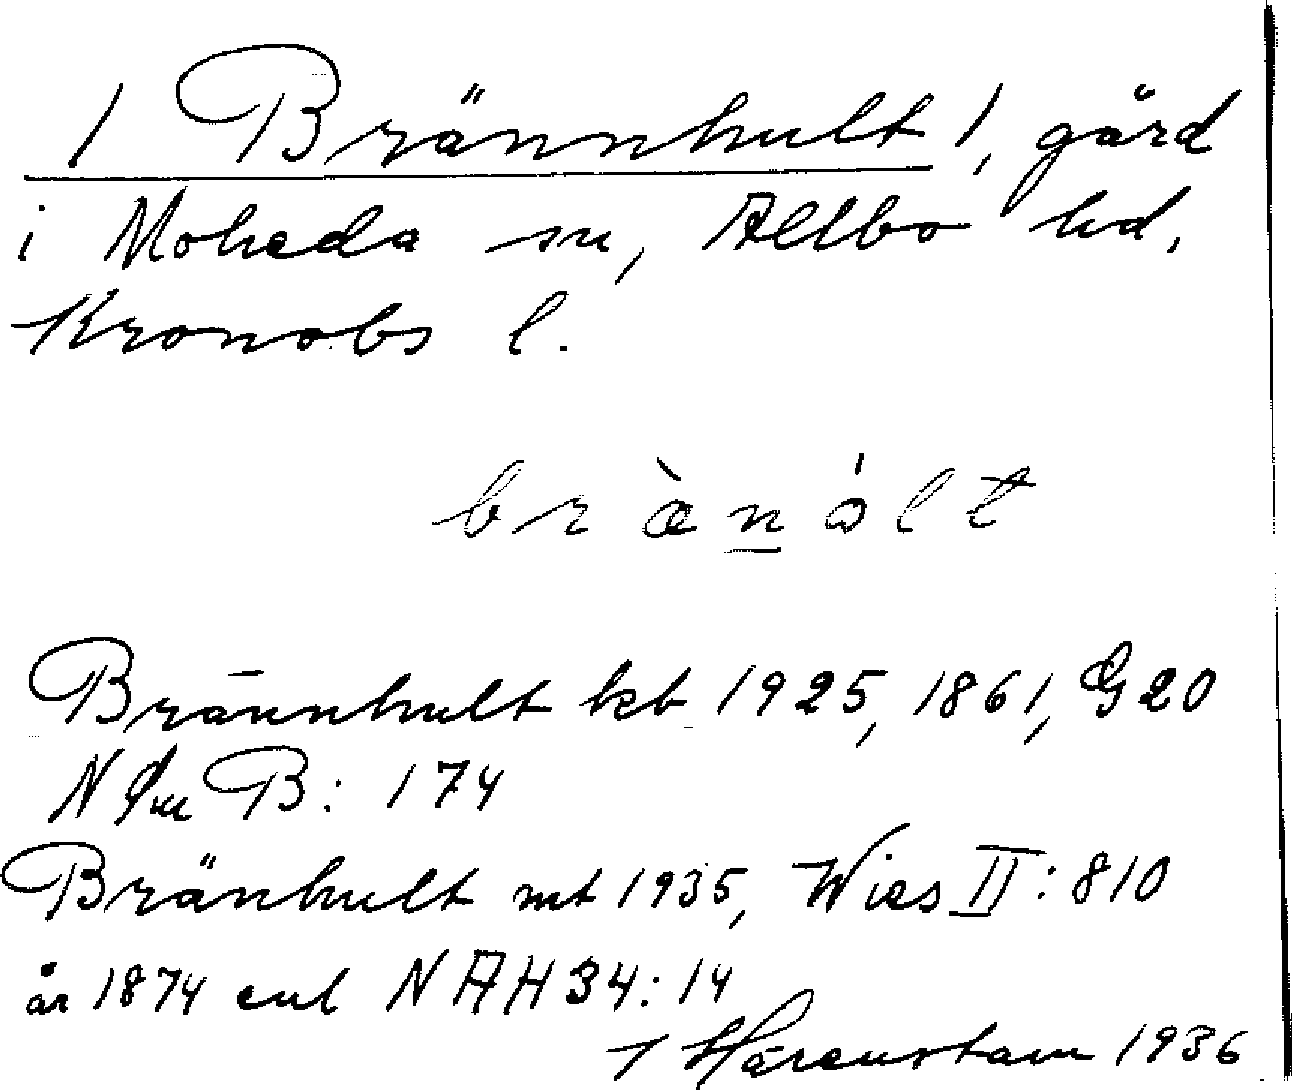 / Brännhult /, gård
i Moheda sn, Allbo hd,
Kronobs l.
brànólt
Brännhult kb 1925, 1861, G 20
B: 174
Bränhult mt 1935, Wies II: 810
år 1874 enl NAH 34: 14
Härenstam 1936